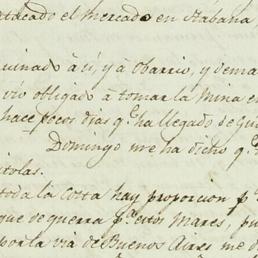 atacado el mercado en Habana,
uinado à ti, y à Obarrio, y dema
vio obligado à tomar la Mina e
hace pocos dias q.e ha llegado de Gui
Domingo me ha dicho q.e
itolas.
toda la Costa hay proporcion p.
que de guerra p.a estos Mares, pu
por la via de Buenos Aires me d